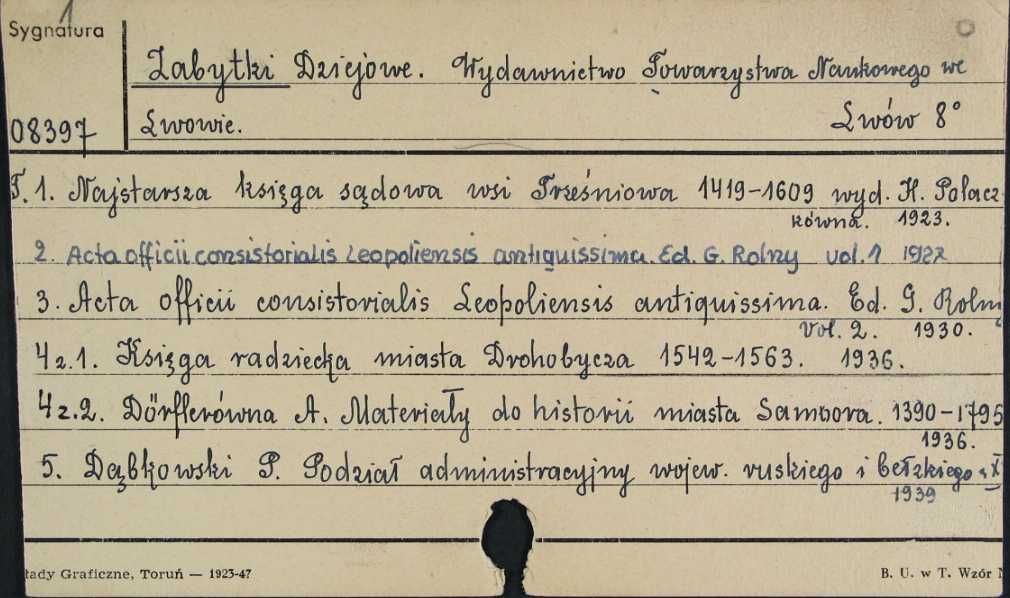 1
Sygnatura
Zabytki Dziejowe. Wydawnictwo Towarzystwa Naukowego we
08397 Lwowie. Lwów 8°
T. 1. Najstarsza księga sądowa wsi Trześniowa 1419-1609 wyd. H. Polacz-
kówna. 1923.
2. Acta officii consistorialis Leopoliensis antiquissima. Ed. G. Rolny vol. 1 1927
3. Acta officii consistorialis Leopoliensis antiquissima. Ed. G. Rolny
Vol. 2. 1930.
4 z. 1. Księga radziecka miasta Drohobycza 1542-1563. 1936.
4 z. 2. Dörflerówna A. Materiały do historii miasta Sambora. 1390-1795
1936.
5. Dąbkowski P. Podział administracyjny wojew. ruskiego i bełzkiego
1939
łady Graficzne, Toruń — 1923-47 B. U. w T. Wzór